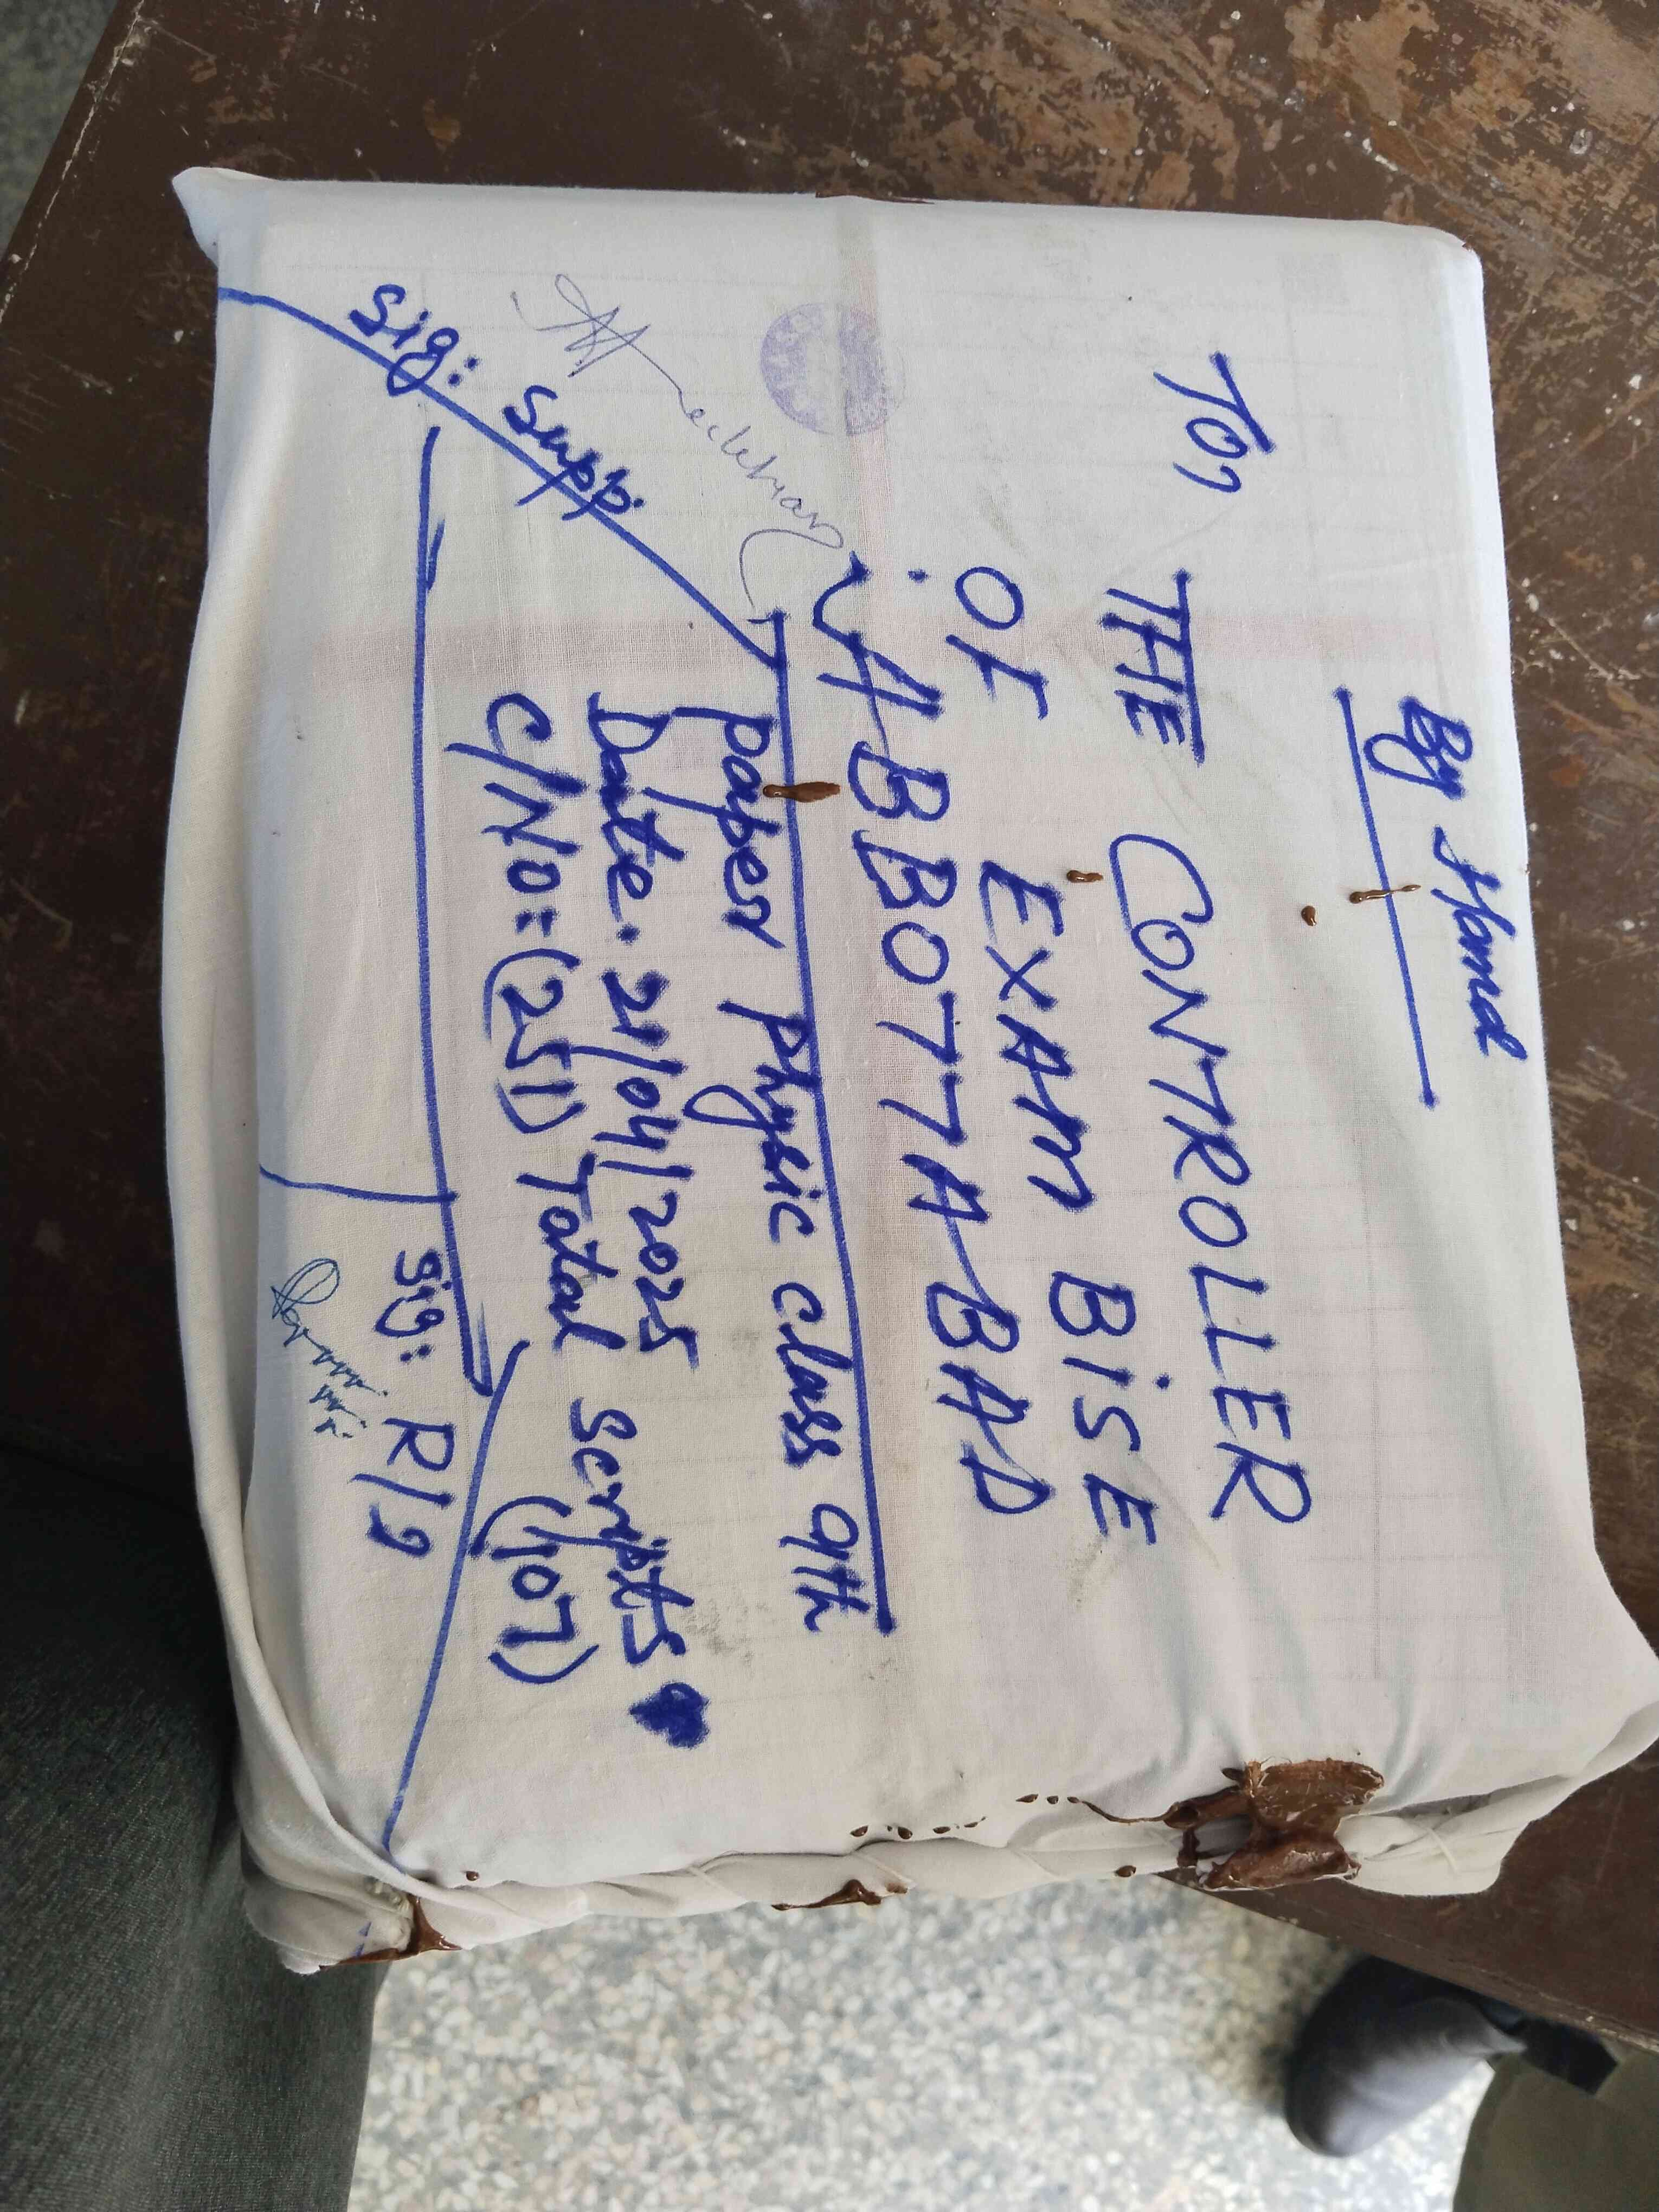 By Hand
To,
THE CONTROLLER
OF EXAM BiSE
ABBOTTABAD
paper Physic class 9th
Date. 21/04/2025
C/NO:(251) Total Scripts
(107)
Sig: Supp:
Sig: R/I